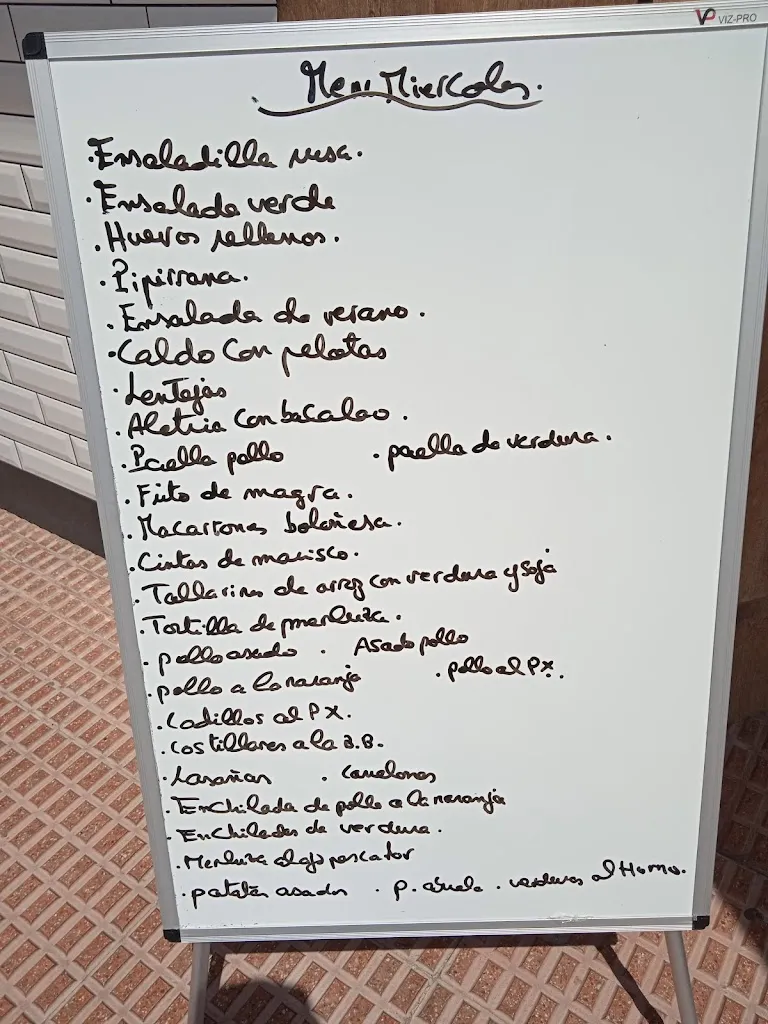 VP VIZ-PRO
Menu Miercoles.
·Ensaladilla rusa.
·Ensalada verde
.Huevos rellenos.
·Pipirrana.
.Ensalada de verano.
·Caldo con pelotas
·Lentejas
.Aletria con bacalao.
.Paella pollo ·paella de verdura.
.Frito de magra.
.Macarrones boloñesa.
.Cintas de marisco.
·Tallarines de arroz con verdura y soja
.Tortilla de merluza.
·pollo asado · Asado pollo
·pollo a la naranja ·pollo al PX.
.Codillos al PX.
.costillares a la B.B.
·Lasañas · Canelones
·Enchilada de pollo a la naranja
·Enchiladas de verdura.
·Merluza al ajo pescador
·patatas asadas · p. abuela · verduras al Horno.